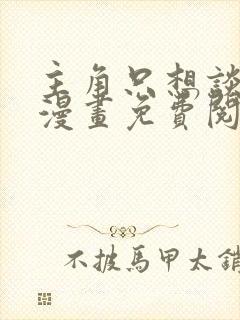 主角只想談
漫畫免費閱
不披馬甲太銷